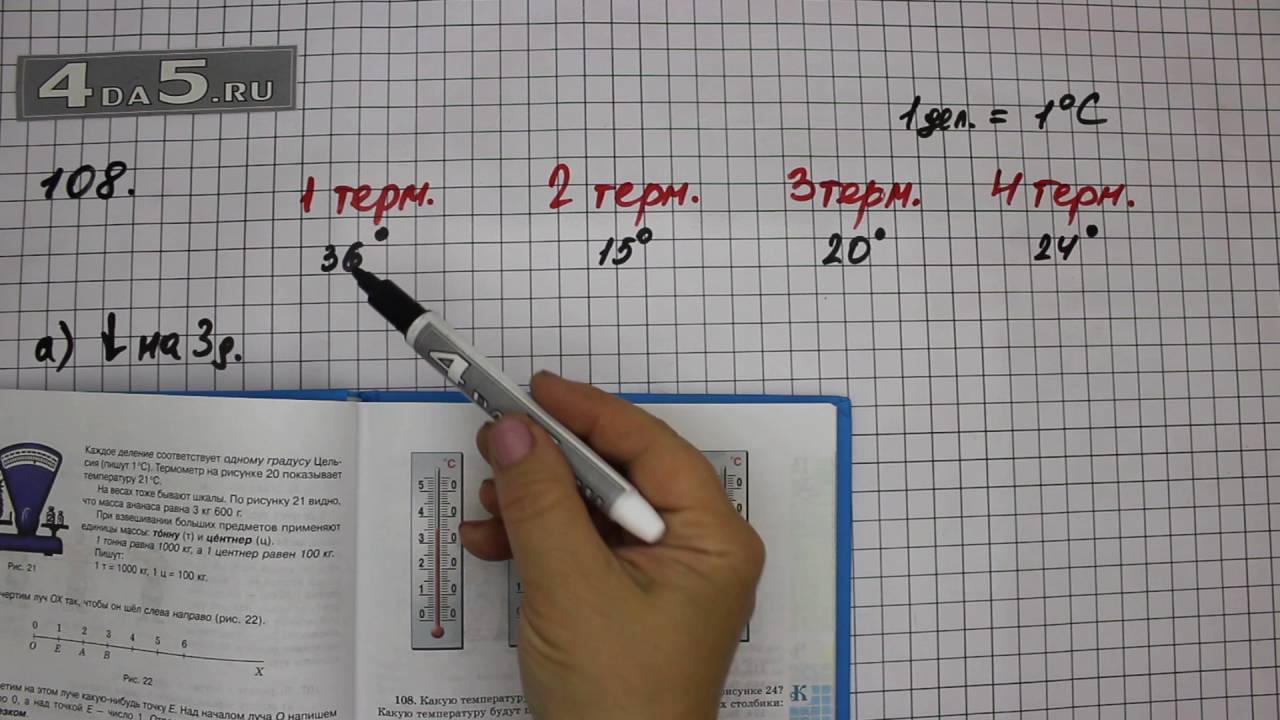 4DA5.RU
1 дел. = 1°C
108.
1 терм. 2 терм. 3 терм. 4 терм.
36° 15° 20° 24°
а) ↓ на 3 д.
Каждое деление соответствует одному градусу Цель-
сия (пишут 1°С). Термометр на рисунке 20 показывает
температуру 21°С.
На весах тоже бывают шкалы. По рисунку 21 видно,
что масса ананаса равна 3 кг 600 г.
При взвешивании больших предметов применяют
единицы массы: то́нну (т) и це́нтнер (ц).
1 тонна равна 1000 кг, а 1 центнер равен 100 кг.
Пишут:
1 т = 1000 кг, 1 ц = 100 кг.
Рис. 21
чертим луч OX так, чтобы он шёл слева направо (рис. 22).
0 1 2 3 4 5 6
O E A B X
Рис. 22
на этом луче какую-нибудь точку E. Над началом луча O напишем
0, а над точкой E — число 1.
°C
5 0
4 0
3 0
2 0
1 0
0 0
°C
0
0
0
108. Какую температуру рисунке 24?
Какую температуру будут столбики:
К